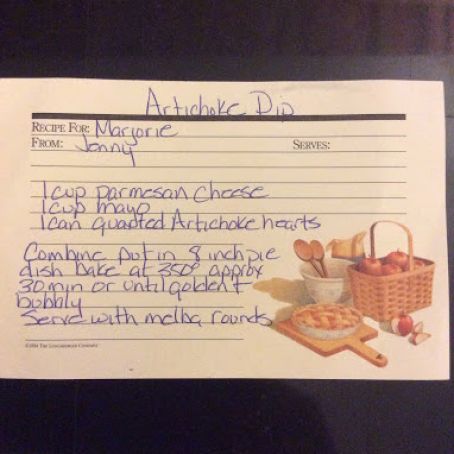 Artichoke Dip
RECIPE FOR: Marjorie
FROM: Jenny SERVES:
1 cup parmesan cheese
1 cup mayo
1 can quarted Artichoke hearts
Combine put in 8 inch pie
dish bake at 350° approx
30 min or until golden +
bubbly
Serve with melba rounds